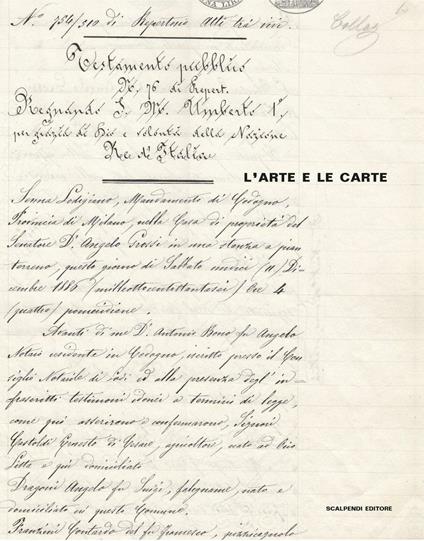 N.º 754/310 di Repertorio Atti tra vivi.
Testamento pubblico
N. 76 di Repert.
Regnando S. M. Umberto 1º,
per grazia di Dio e volontà della Nazione
Re d'Italia
L'ARTE E LE CARTE
Senna Lodigiano, Mandamento di Codogno,
Provincia di Milano, nella Casa di proprietà del
Senatore D.r Angelo Grossi in una stanza a pian
terreno, questo giorno di Sabbato undici /11/ Di=
cembre 1886 /milleottocentottantasei/ Ore 4
/quattro/ pomeridiane.
Avanti di me D.r Antonio Bono fu Angelo
Notaio residente in Codogno, iscritto presso il Con
siglio Notarile di Lodi ed alla presenza degl' in=
frascritti testimoni idonei a termini di legge,
come qui asserirono e confermarono, Signori
Castoldi Ernesto di Cesare, agricoltore, nato ad
e qui domiciliato
Dragoni Angelo fu Luigi, falegname, nato e
domiciliato in questo Comune.
Franzini Contardo del fu Francesco, pizzicagnolo
SCALPENDI EDITORE